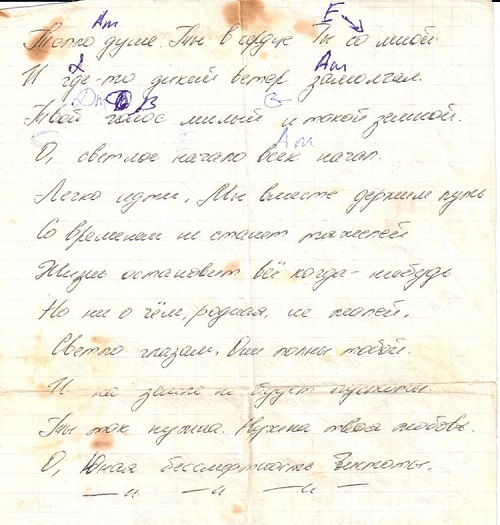 Am F
Тепло душе. Ты в сердце Ты со мной
Am
И где-то дикий ветер замолчал.
Dm B G
Твой голос милый и такой земной.
C Am
О, светлое начало всех начал.
Легко идти, Мы вместе держим путь
Со временем не станет тяжелей
Жизнь остановит всё когда-нибудь
Но ни о чём, родная, не жалей.
Светло глазам. Они полны тобой.
И на земле не будет пустоты
Ты так нужна. Нужна твоя любовь.
О, Юная бессмертность Чистоты.
— " — " — " —